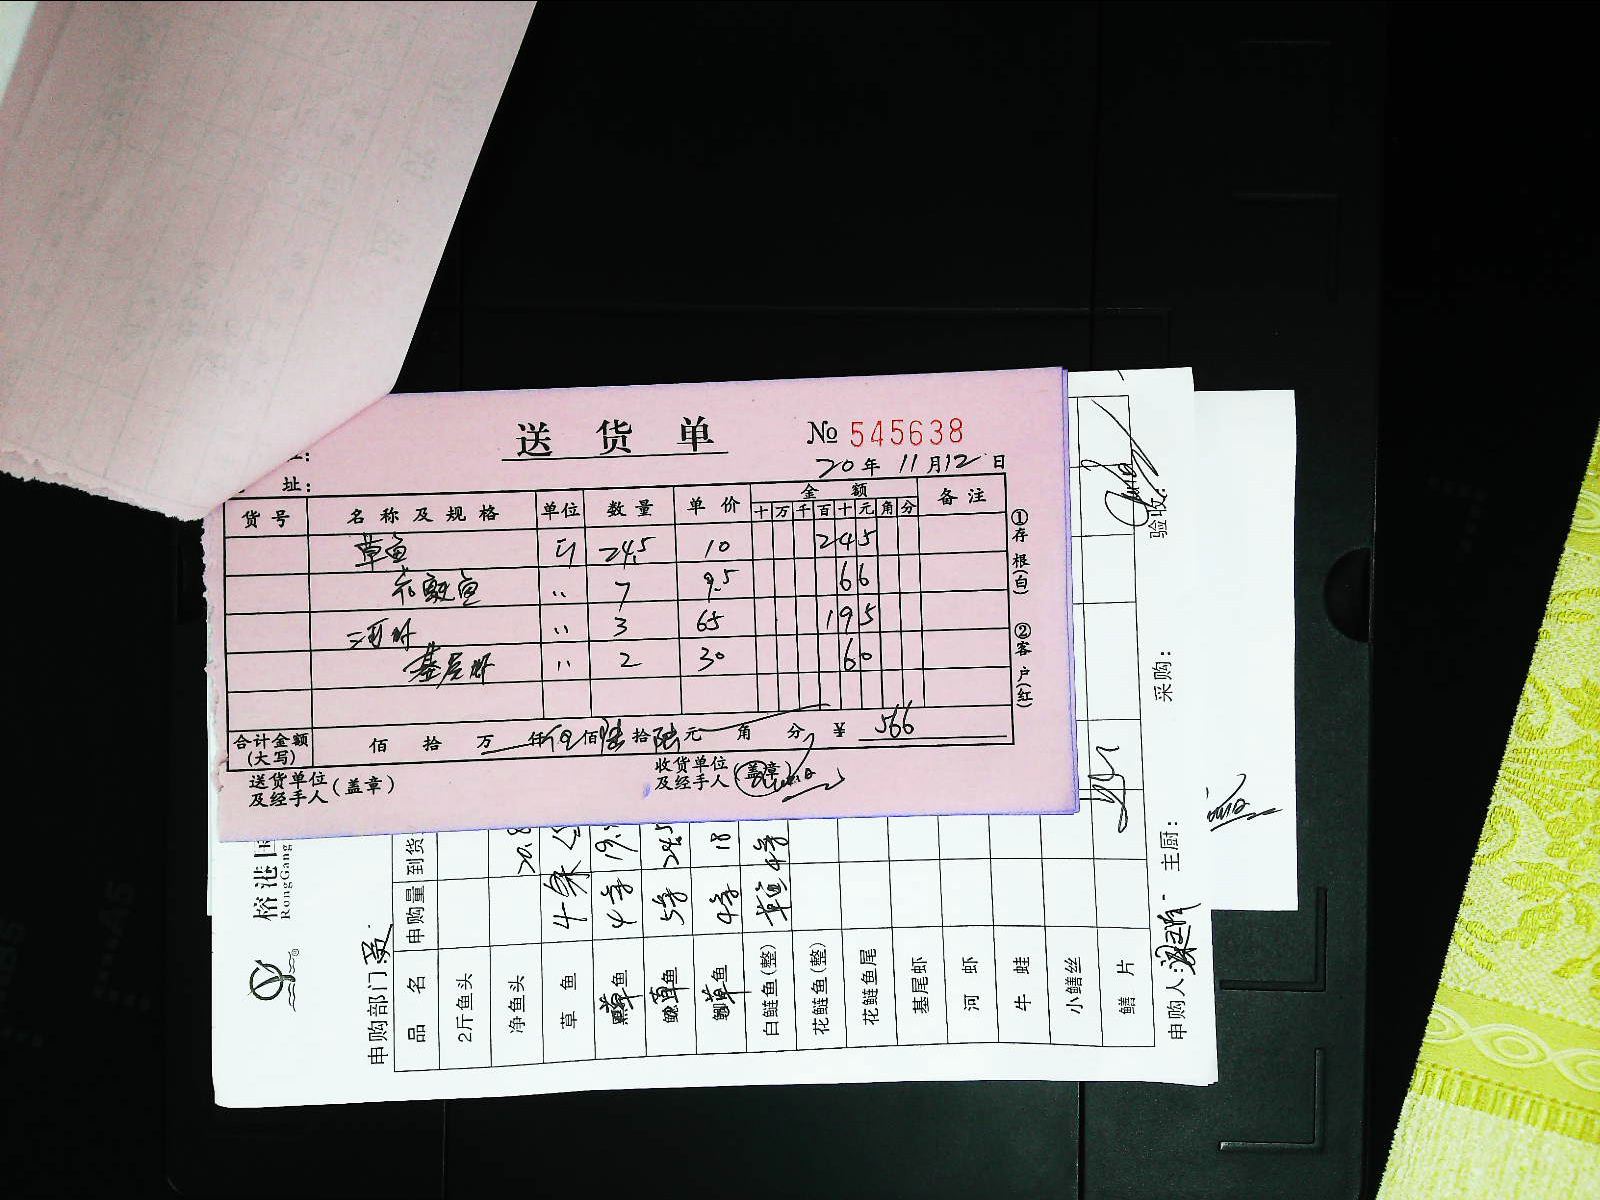 送 货 单 № 545638
20年 11月12日
址:
货号 名称及规格 单位 数量 单价 金额 备注
十 万 千 百 十 元 角 分
草鱼 斤 24.5 10 245
花鲢鱼 〃 7 9.5 66
河虾 〃 3 65 195
基尾虾 〃 2 30 60
合计金额(大写) 佰 拾 万 仟伍佰陆拾陆元 角 分 ¥ 566
送货单位及经手人(盖章) 收货单位及经手人(盖章)
①存根(白) ②客户(红)
榕港国
RongGang
申购部门
品名 申购量 到货
2斤鱼头
净鱼头 20.8
草鱼
草鱼
草鱼 24.5
草鱼 18
白鲢鱼(整) 草鱼
花鲢鱼(整)
花鲢鱼尾
基尾虾
河虾
牛蛙
小鳝丝
鳝片
申购人: 主厨: 采购: 验收: